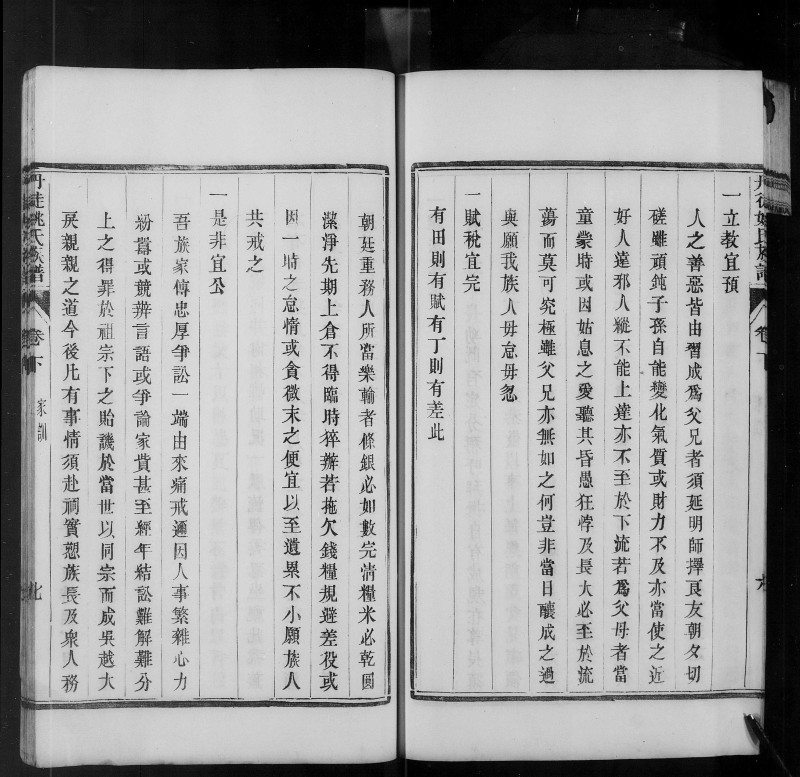 一立教宜預
人之善惡皆由習成為父兄者須延明師擇良友朝夕切
磋雖頑鈍子孫自能變化氣質或財力不及亦當使之近
好人遠邪人縱不能上達亦不至於下流若為父母者當
童蒙時或因姑息之愛聽其昏愚狂悖及長大必至於流
蕩而莫可究極雖父兄亦無如之何豈非當日釀成之過
與願我族人毋怠毋忽
一賦稅宜完
有田則有賦有丁則有差此
朝廷重務人所當樂輸者條銀必如數完清糧米必乾圓
潔淨先期上倉不得臨時猝辦若拖欠錢糧規避差役或
因一時之怠惰或貪微末之便宜以至遺累不小願族人
共戒之
一是非宜公
吾族家傳忠厚爭訟一端由來痛戒邇因人事繁雜心力
紛囂或競辨言語或爭論家貲甚至經年結訟難解難分
上之得罪於祖宗下之貽譏於當世以同宗而成吳越大
戾親親之道今後凡有事情須赴祠實愬族長及衆人務
丹徒姚氏族譜 卷下 家訓